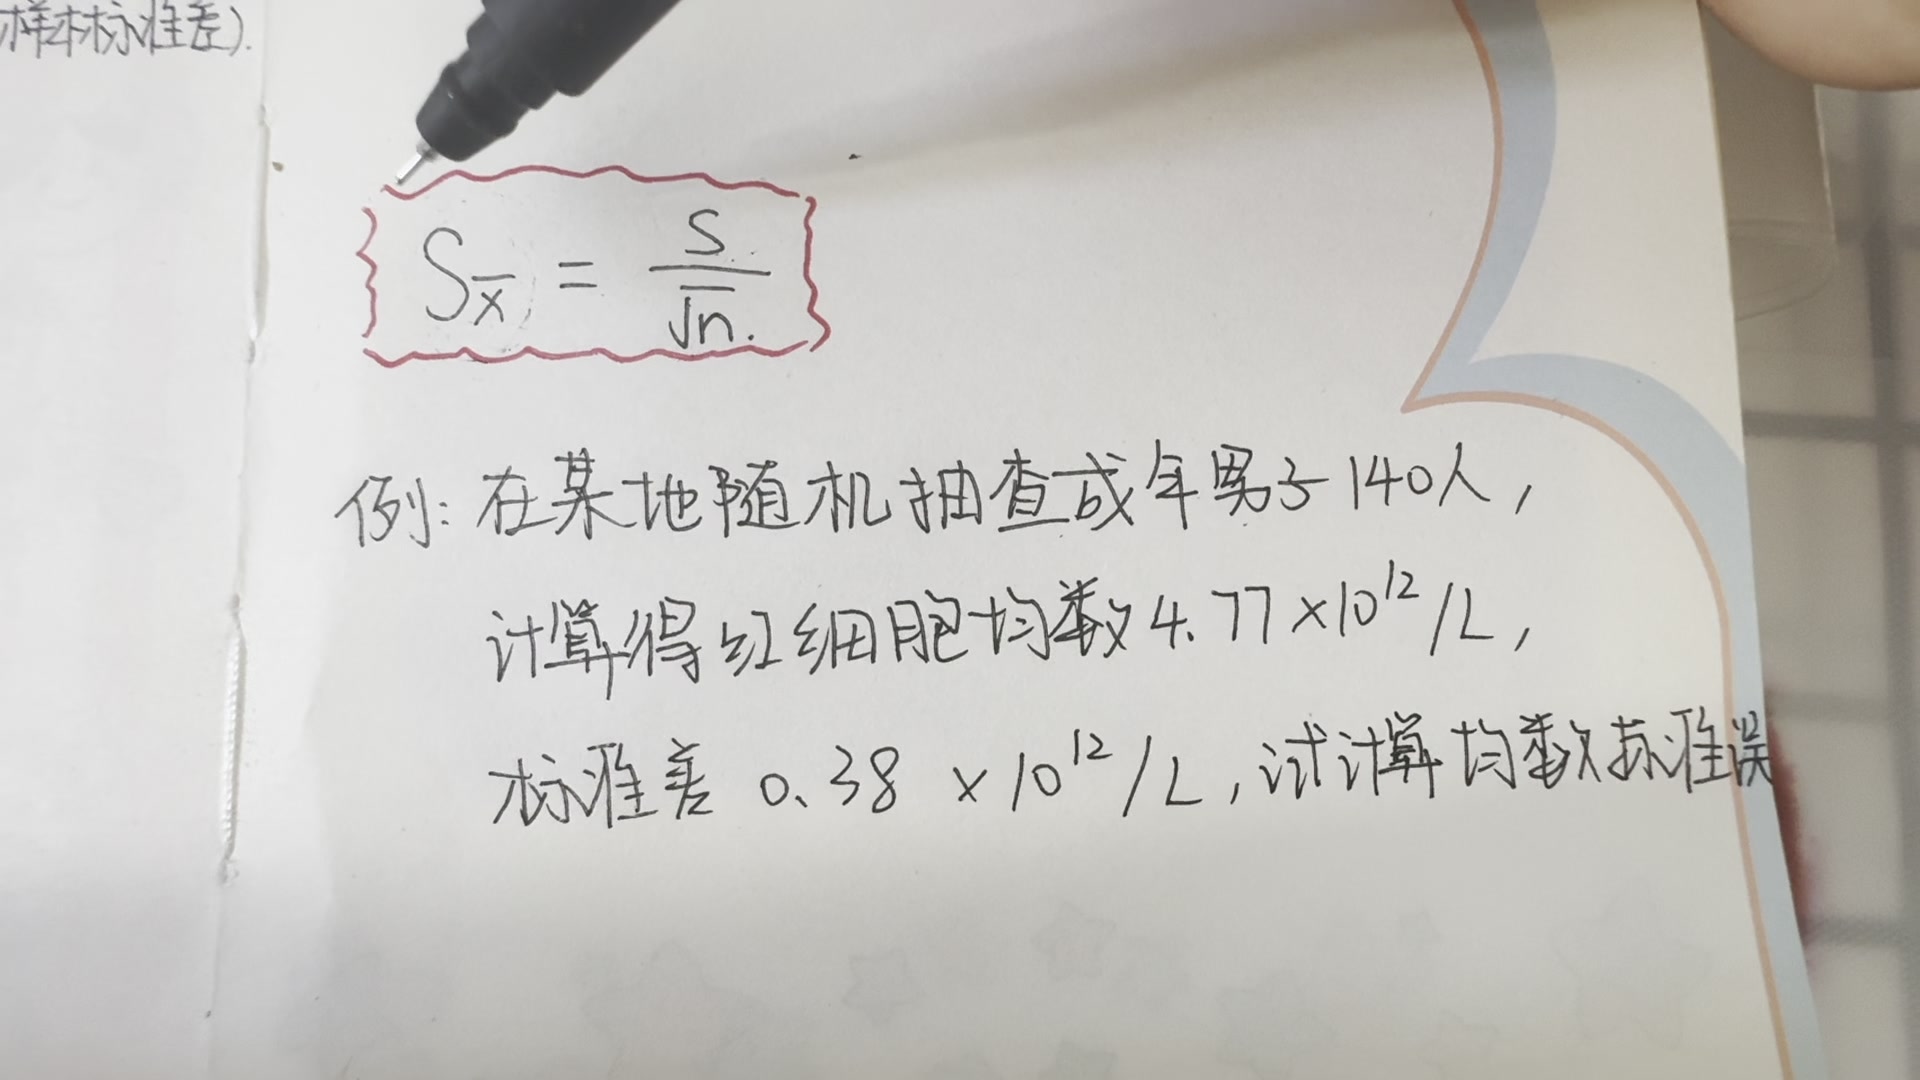 样本标准差).
S x̄ = s / √n.
例: 在某地随机抽查成年男子140人,
计算得红细胞均数4.77×10¹²/L,
标准差 0.38 ×10¹²/L,试计算均数标准误